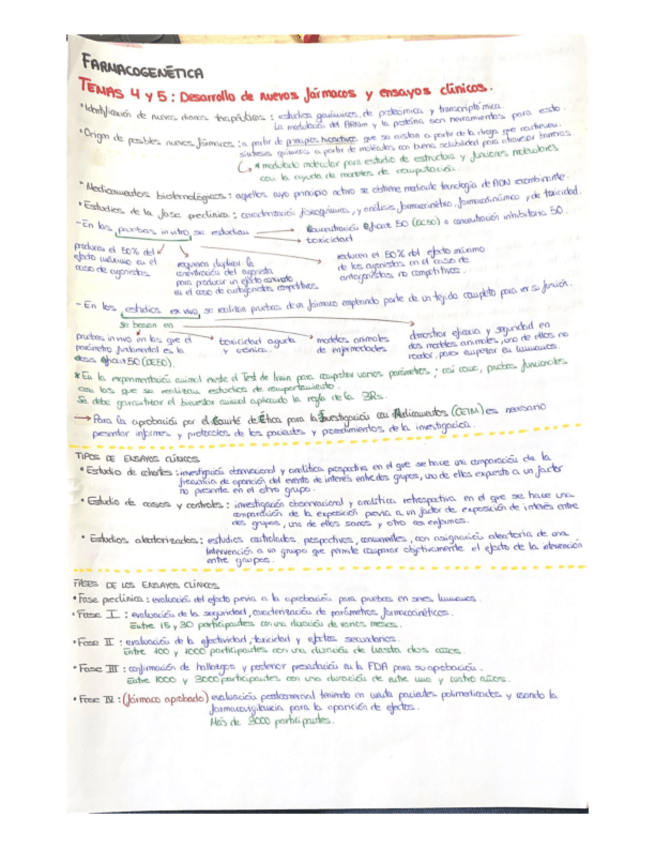 FARMACOGENÉTICA
TEMAS 4 y 5: Desarrollo de nuevos fármacos y ensayos clínicos.
• Identificación de nuevas dianas terapéuticas: estudios genómicos, de proteómica y transcriptómica.
La modulación del ARNm y la proteína son herramientas para esto.
• Origen de posibles nuevos fármacos: a partir de principios bioactivos que se aíslan a partir de la droga que
síntesis química a partir de moléculas con buena solubilidad para atravesar barreras.
* modelado molecular para estudio de estructura y funciones moleculares
con la ayuda de modelos de computación.
• Medicamentos biotecnológicos: aquellos cuyo principio activo se obtiene mediante tecnología de ADN recombinante.
• Estudios de la fase preclínica: caracterización toxicogénica, y análisis farmacocinético, farmacodinámico y de toxicidad.
- En las pruebas in vitro se estudian → Concentración Eficaz 50 (EC50) o concentración inhibitoria 50.
→ toxicidad
producen el 50% del
efecto máximo en el
caso de agonistas
requieren duplicar la
concentración del agonista
para producir un efecto
en el caso de antagonistas competitivos.
reducen el 50% del efecto máximo
de los agonistas en el caso de
antagonistas no competitivos.
- En los estudios ex vivo, se realizan pruebas de un fármaco empleando parte de un tejido completo para ver su función.
se basan en
pruebas in vivo en las que el
parámetro fundamental es la
dosis Eficaz 50 (DE50).
toxicidad aguda
y crónica.
modelos animales
de enfermedades
demostrar eficacia y seguridad en
dos modelos animales, uno de ellos no
roedor, para empezar en humanos.
* En la experimentación animal existe el Test de Irwin para completar varios parámetros; así como, pruebas funcionales
con las que se realizan estudios de comportamiento.
Se debe garantizar el bienestar animal aplicando la regla de la 3Rs.
→ Para la aprobación por el Comité de Ética para la Investigación con Medicamentos (CEIM) es necesario
presentar informes y protección de los pacientes y procedimientos de la investigación.
TIPOS DE ENSAYOS CLÍNICOS
• Estudio de cohortes: investigación observacional y analítica prospectiva en el que se hace una comparación de la
frecuencia de aparición del evento de interés entre dos grupos, uno de ellos expuesto a un factor
no presente en el otro grupo.
• Estudio de casos y controles: investigación observacional y analítica retrospectiva en el que se hace una
comparación de la exposición previa a un factor de exposición de interés entre
dos grupos, uno de ellos sanos y otro los enfermos.
• Estudios aleatorizados: estudios controlados, prospectivos, concurrentes, con asignación aleatoria de una
intervención a un grupo que permite comparar objetivamente el efecto de la
entre grupos.
FASES DE LOS ENSAYOS CLÍNICOS
• Fase preclínica: evaluación del efecto previa a la aprobación para pruebas en seres humanos.
• Fase I: evaluación de la seguridad, caracterización de parámetros farmacocinéticos.
Entre 15 y 30 participantes con una duración de varios meses.
• Fase II: evaluación de la efectividad, toxicidad y efectos secundarios.
Entre 100 y 1000 participantes con una duración de hasta dos años.
• Fase III: confirmación de hallazgos y posterior presentación en la FDA para su aprobación.
Entre 1000 y 3000 participantes con una duración de entre uno y cuatro años.
• Fase IV: (fármaco aprobado) evaluación postcomercial teniendo en cuenta pacientes polimedicados y usando la
farmacovigilancia para la aparición de efectos.
Más de 3000 participantes.